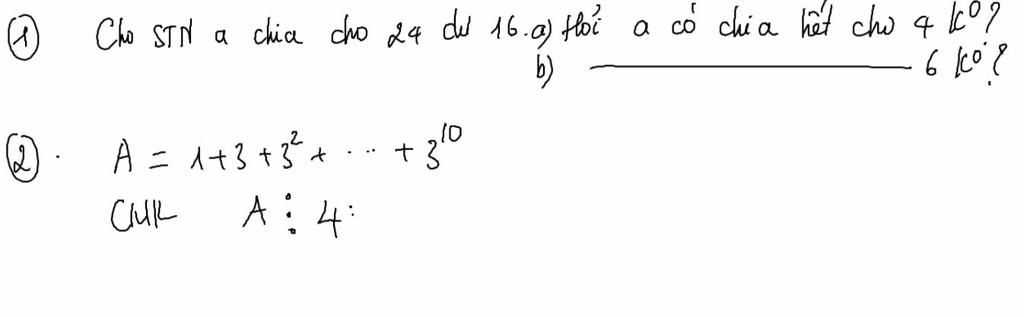 ① Cho STN a chia cho 24 dư 16. a) Hỏi a có chia hết cho 4 ko?
b) ———————— 6 ko?
②. A = 1+3+3²+ ... + 3¹⁰
CMR A ⋮ 4